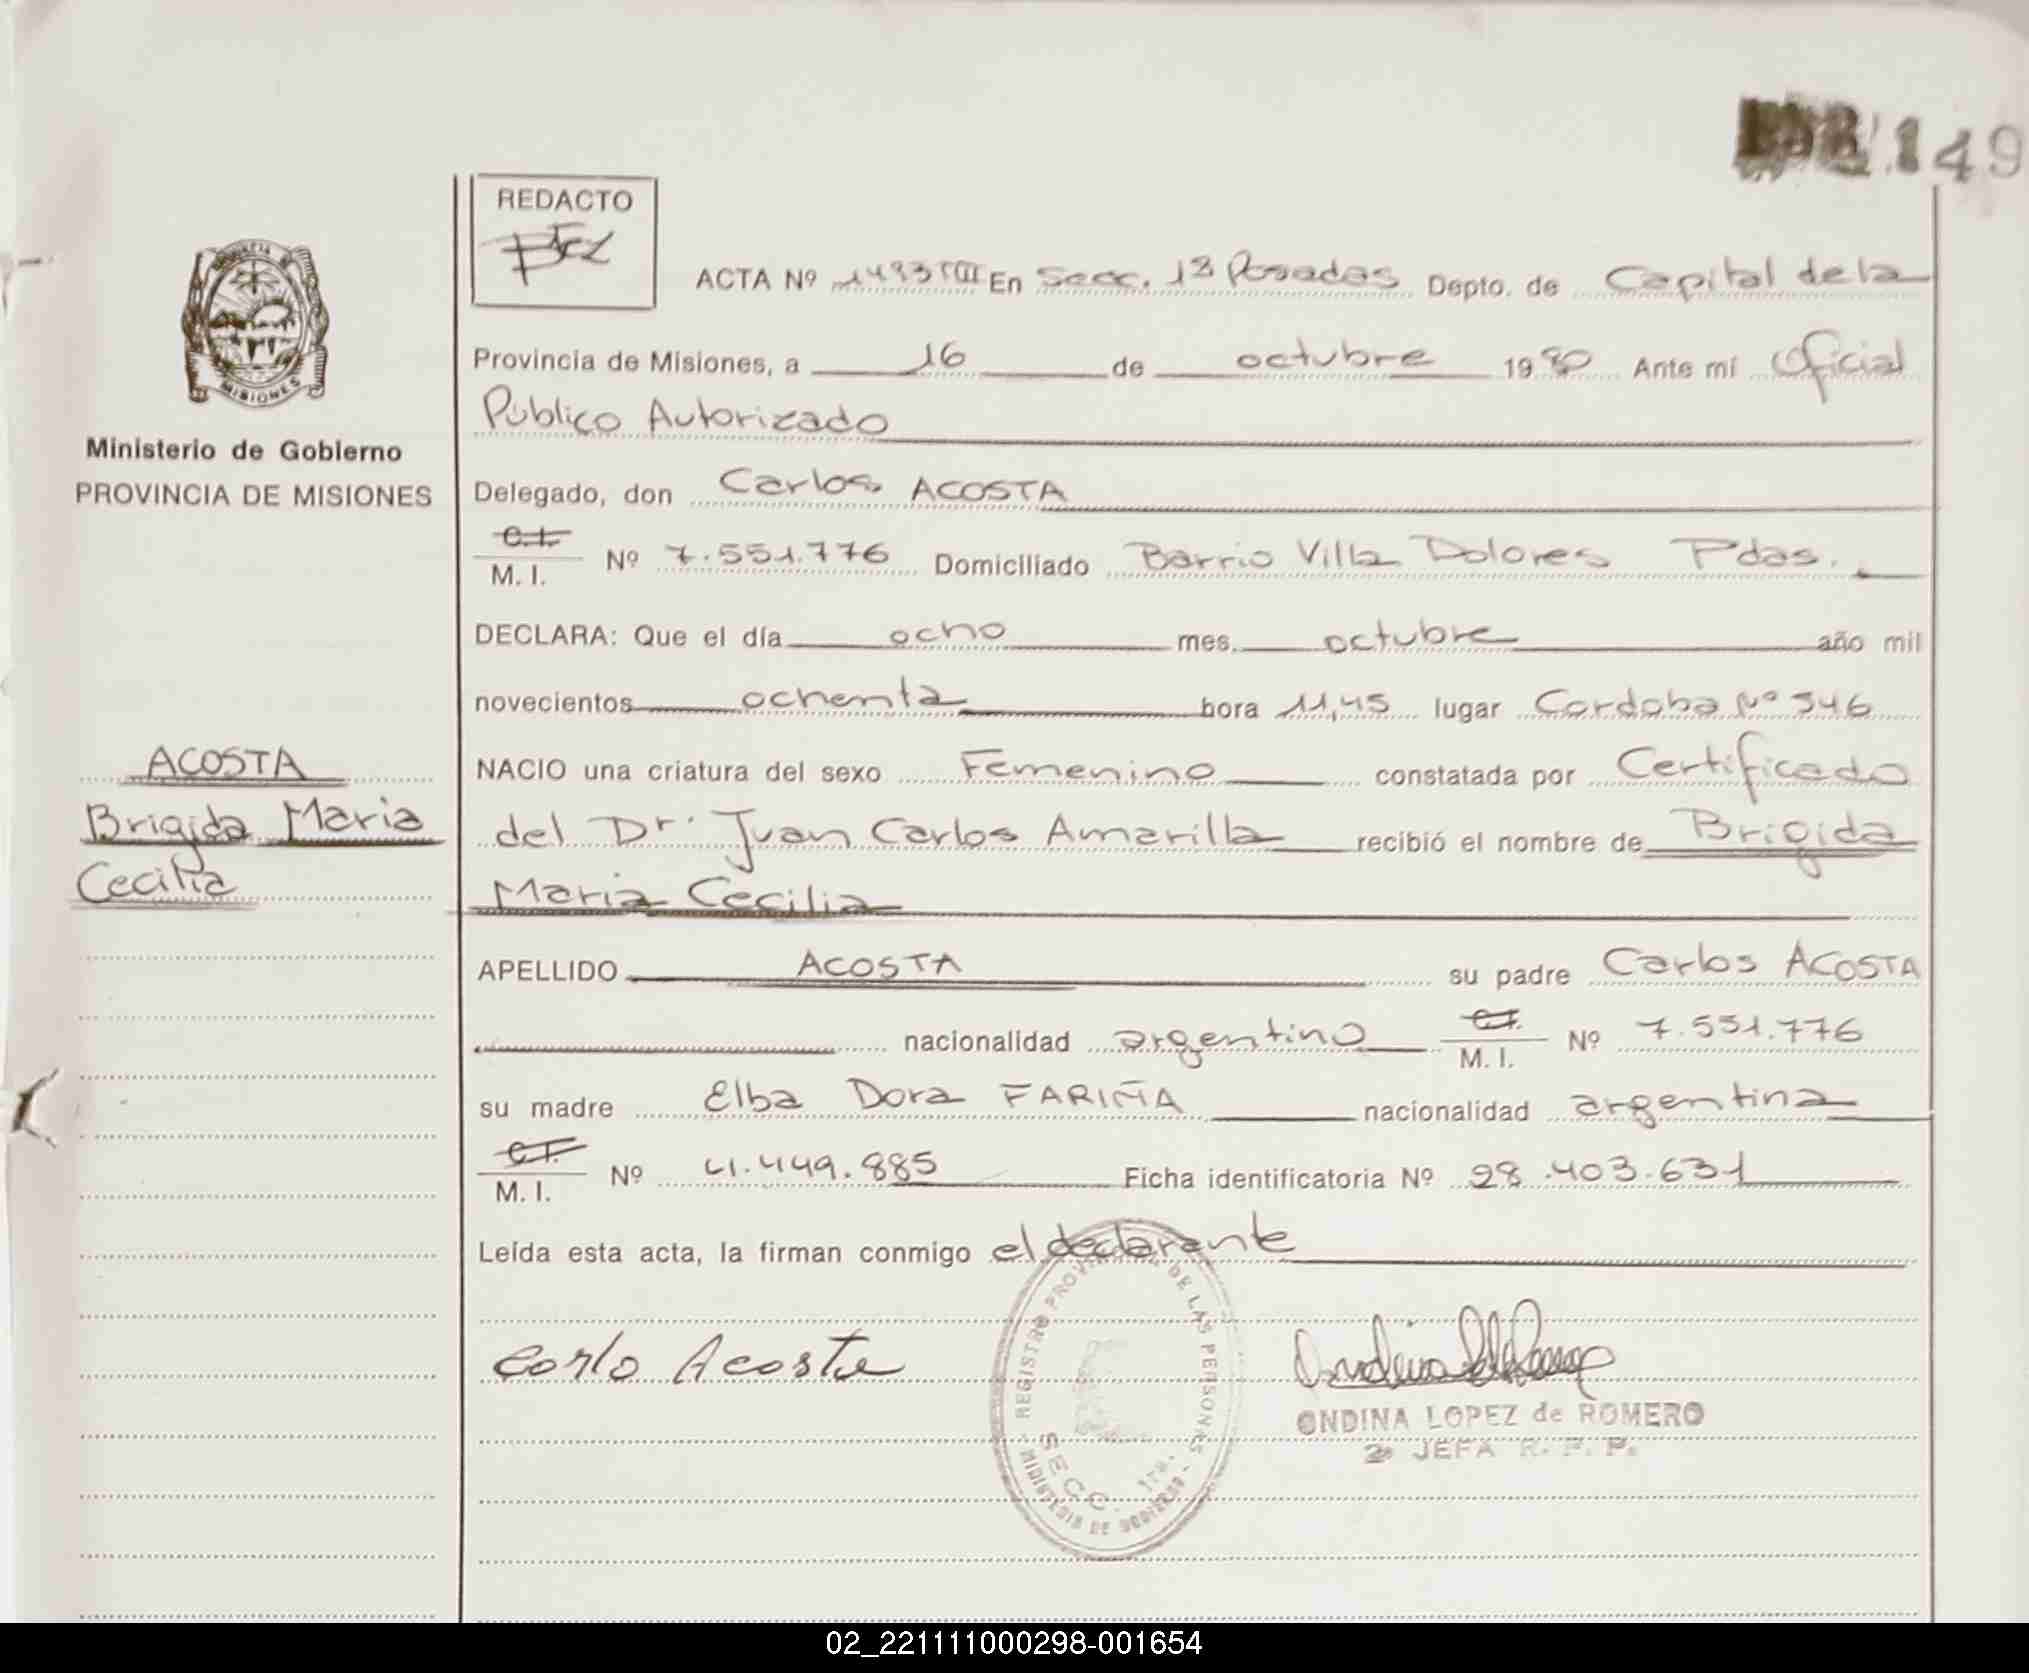 149
REDACTO
ACTA Nº 1493 TIII En Secc. 1ª Posadas Depto. de Capital de la
Provincia de Misiones, a 16 de octubre 1980 Ante mí Oficial
Público Autorizado
Ministerio de Gobierno
PROVINCIA DE MISIONES
Delegado, don Carlos ACOSTA
C.I.
M. I. Nº 7.551.776 Domiciliado Barrio Villa Dolores Pdas.
DECLARA: Que el día ocho mes octubre año mil
novecientos ochenta hora 11,45 lugar Cordoba Nº 546
ACOSTA
Brigida Maria
Cecilia
NACIO una criatura del sexo Femenino constatada por Certificado
del Dr. Juan Carlos Amarilla recibió el nombre de Brigida
Maria Cecilia
APELLIDO ACOSTA su padre Carlos ACOSTA
nacionalidad argentino C.I. M. I. Nº 7.551.776
su madre Elba Dora FARIÑA nacionalidad argentina
C.I.
M. I. Nº 4.449.885 Ficha identificatoria Nº 28.403.631
Leída esta acta, la firman conmigo el declarante
Carlo Acosta
REGISTRO PROVINCIAL DE LAS PERSONAS
SECC. 1ra.
MINISTERIO DE GOBIERNO
ONDINA LOPEZ de ROMERO
2ª JEFA R. P. P.
PROVINCIA DE
MISIONES
02_221111000298-001654